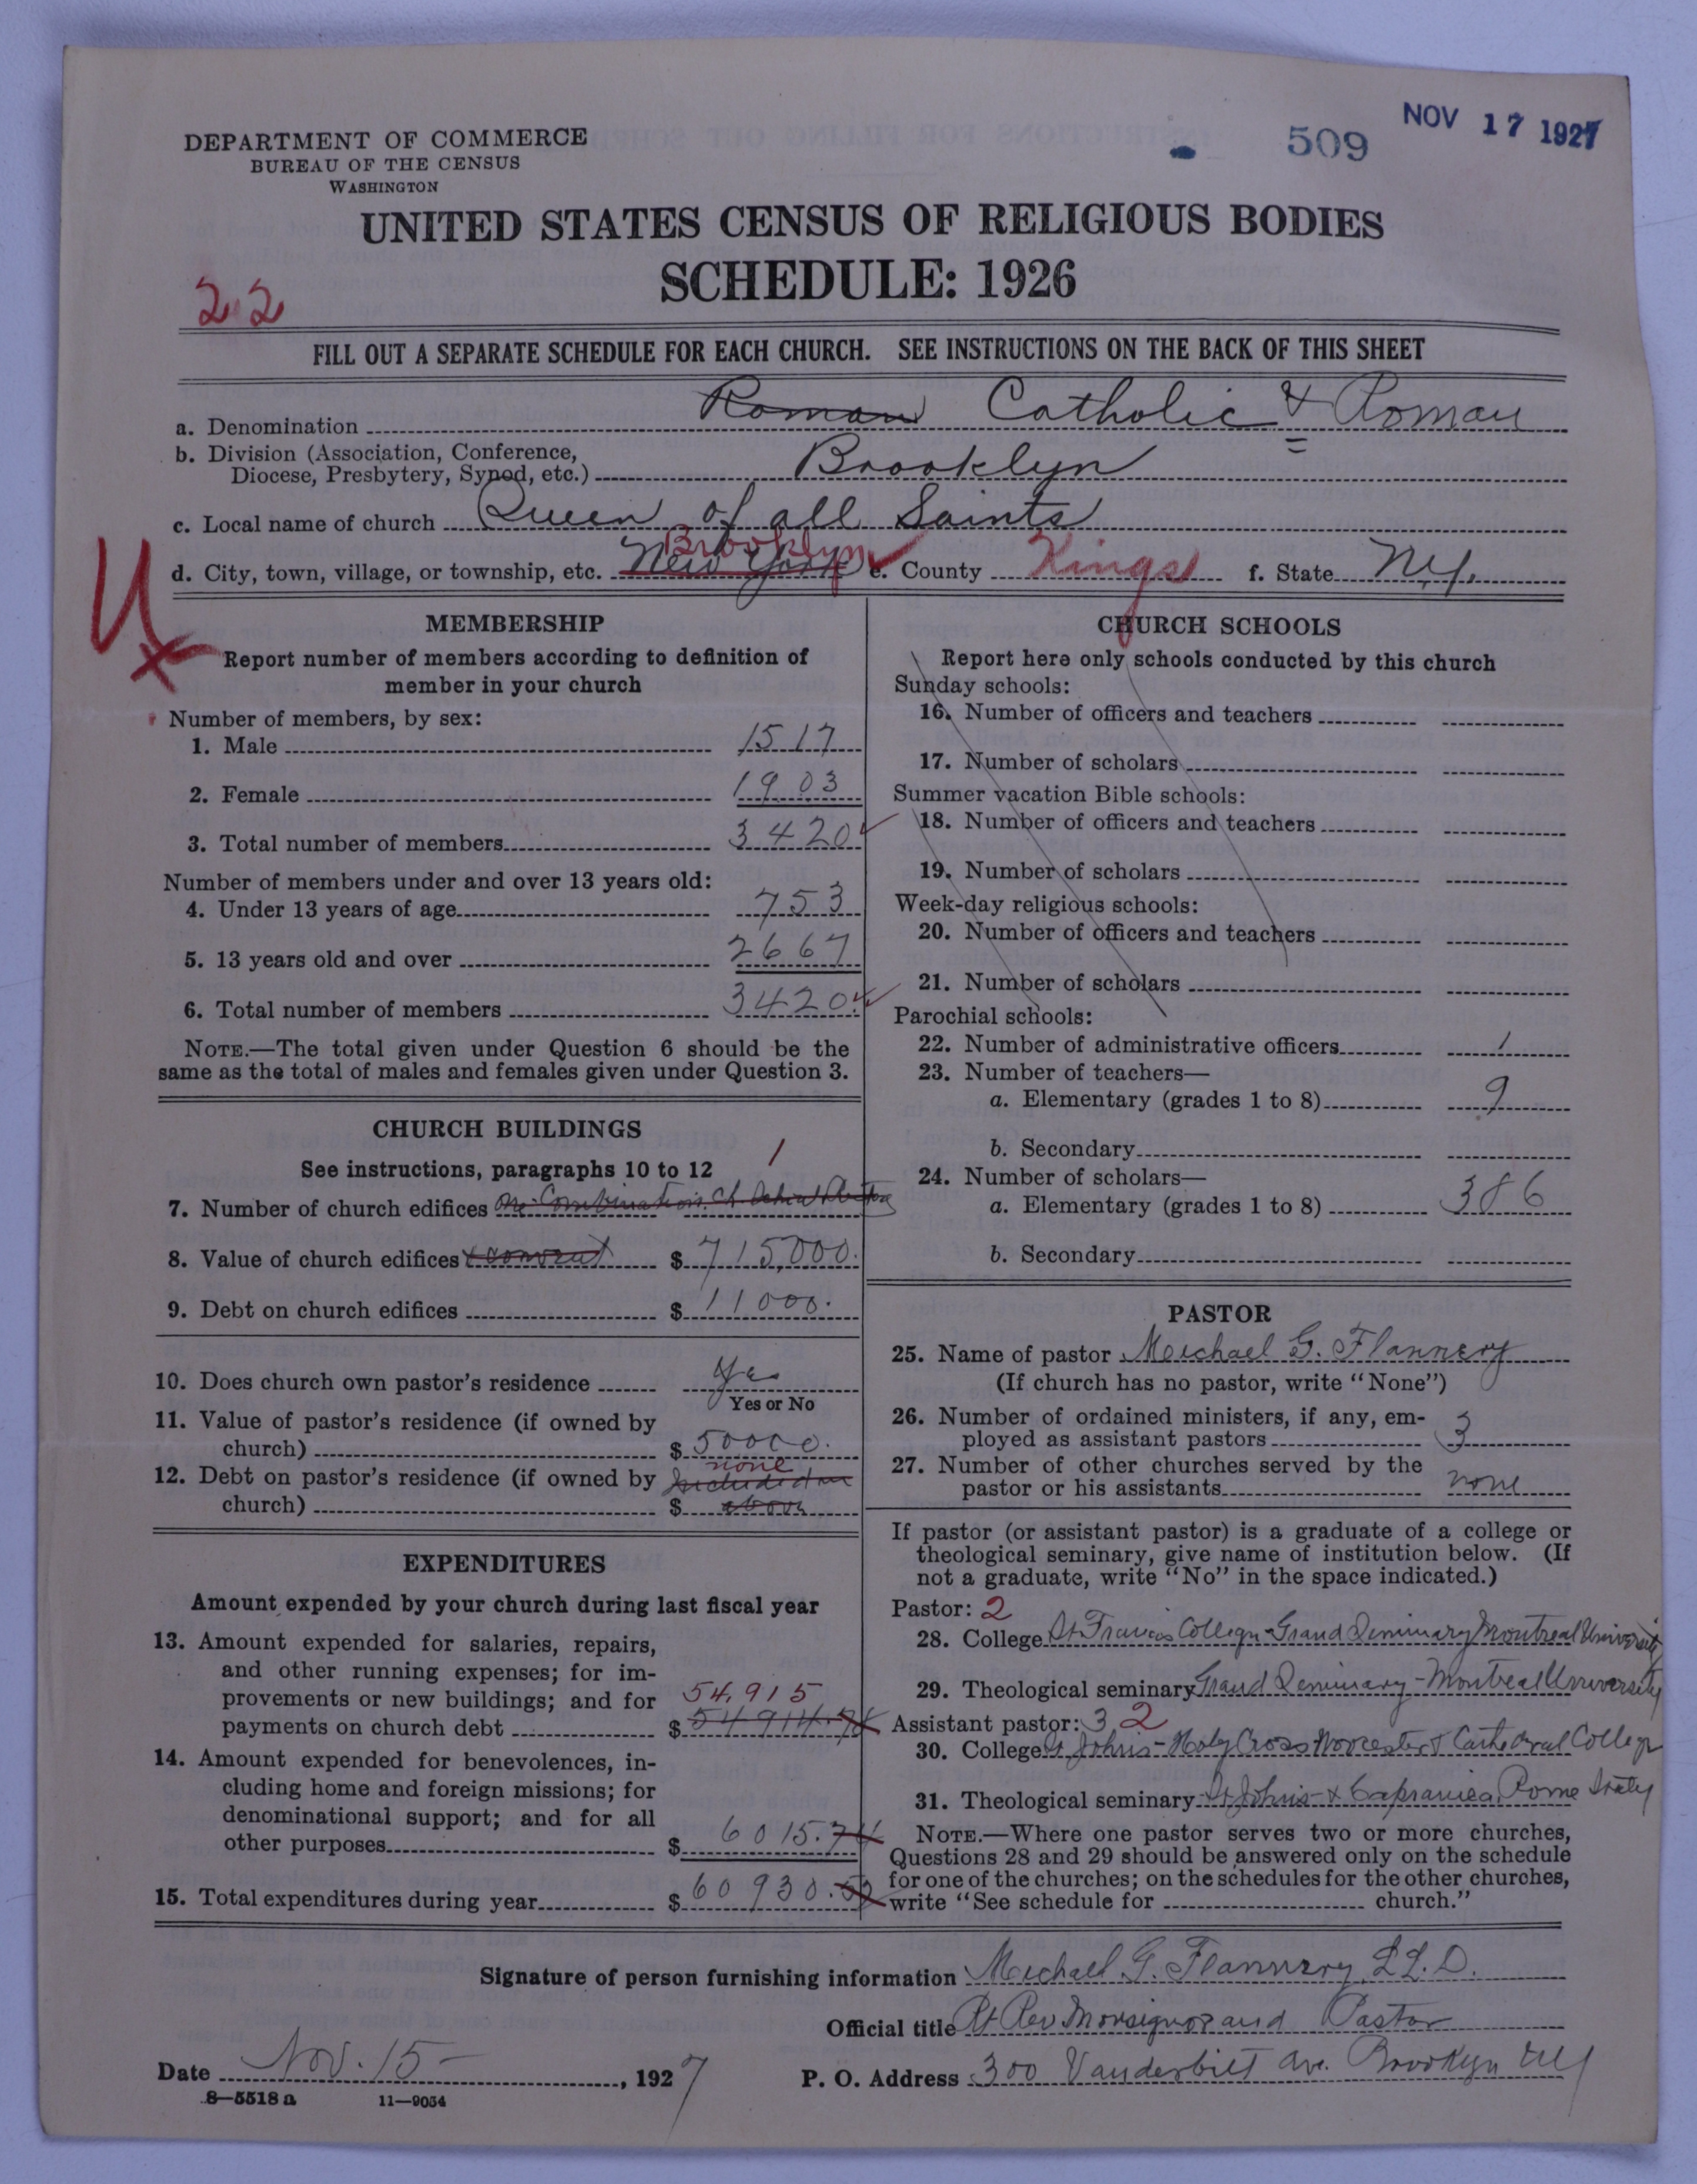 NOV 17 1927
509
DEPARTMENT OF COMMERCE
BUREAU OF THE CENSUS
WASHINGTON
UNITED STATES CENSUS OF RELIGIOUS BODIES
SCHEDULE: 1926
22
FILL OUT A SEPARATE SCHEDULE FOR EACH CHURCH. SEE INSTRUCTIONS ON THE BACK OF THIS SHEET
a. Denomination Roman Catholic & Roman
b. Division (Association, Conference,
Diocese, Presbytery, Synod, etc.) Brooklyn
c. Local name of church Queen of all Saints
Brooklyn
d. City, town, village, or township, etc. New York e. County Kings f. State N.Y.
MEMBERSHIP
Report number of members according to definition of
member in your church
Number of members, by sex:
1. Male 1517
2. Female 1903
3. Total number of members 3420
Number of members under and over 13 years old:
4. Under 13 years of age 753
5. 13 years old and over 2667
6. Total number of members 3420
NOTE.—The total given under Question 6 should be the
same as the total of males and females given under Question 3.
CHURCH BUILDINGS
See instructions, paragraphs 10 to 12
1
7. Number of church edifices One Combination Ch School
8. Value of church edifices & convent $ 715,000.
9. Debt on church edifices $ 11000.
10. Does church own pastor's residence Yes
Yes or No
11. Value of pastor's residence (if owned by
church) $ 50000.
none
12. Debt on pastor's residence (if owned by included in
church) $ above
EXPENDITURES
Amount expended by your church during last fiscal year
13. Amount expended for salaries, repairs,
and other running expenses; for im-
provements or new buildings; and for 54,915
payments on church debt $ 54914.78
14. Amount expended for benevolences, in-
cluding home and foreign missions; for
denominational support; and for all
other purposes $ 6015.74
15. Total expenditures during year $ 60930.52
CHURCH SCHOOLS
Report here only schools conducted by this church
Sunday schools:
16. Number of officers and teachers
17. Number of scholars
Summer vacation Bible schools:
18. Number of officers and teachers
19. Number of scholars
Week-day religious schools:
20. Number of officers and teachers
21. Number of scholars
Parochial schools:
22. Number of administrative officers 1
23. Number of teachers—
a. Elementary (grades 1 to 8) 9
b. Secondary
24. Number of scholars—
a. Elementary (grades 1 to 8) 386
b. Secondary
PASTOR
25. Name of pastor Michael G. Flannery
(If church has no pastor, write "None")
26. Number of ordained ministers, if any, em-
ployed as assistant pastors 3
27. Number of other churches served by the
pastor or his assistants none
If pastor (or assistant pastor) is a graduate of a college or
theological seminary, give name of institution below. (If
not a graduate, write "No" in the space indicated.)
Pastor: 2
28. College St Francis College - Grand Seminary Montreal University
29. Theological seminary Grand Seminary - Montreal University
Assistant pastor: 3 2
30. College St Johns - Holy Cross Worcester & Cathedral College
31. Theological seminary St Johns - & Capranica Rome Italy
NOTE.—Where one pastor serves two or more churches,
Questions 28 and 29 should be answered only on the schedule
for one of the churches; on the schedules for the other churches,
write "See schedule for church."
Signature of person furnishing information Michael G. Flannery, LL.D.
Official title Rt Rev Monsignor and Pastor
Date Nov. 15 - , 1927 P. O. Address 300 Vanderbilt Ave. Brooklyn NY
8—5518 a 11—9054